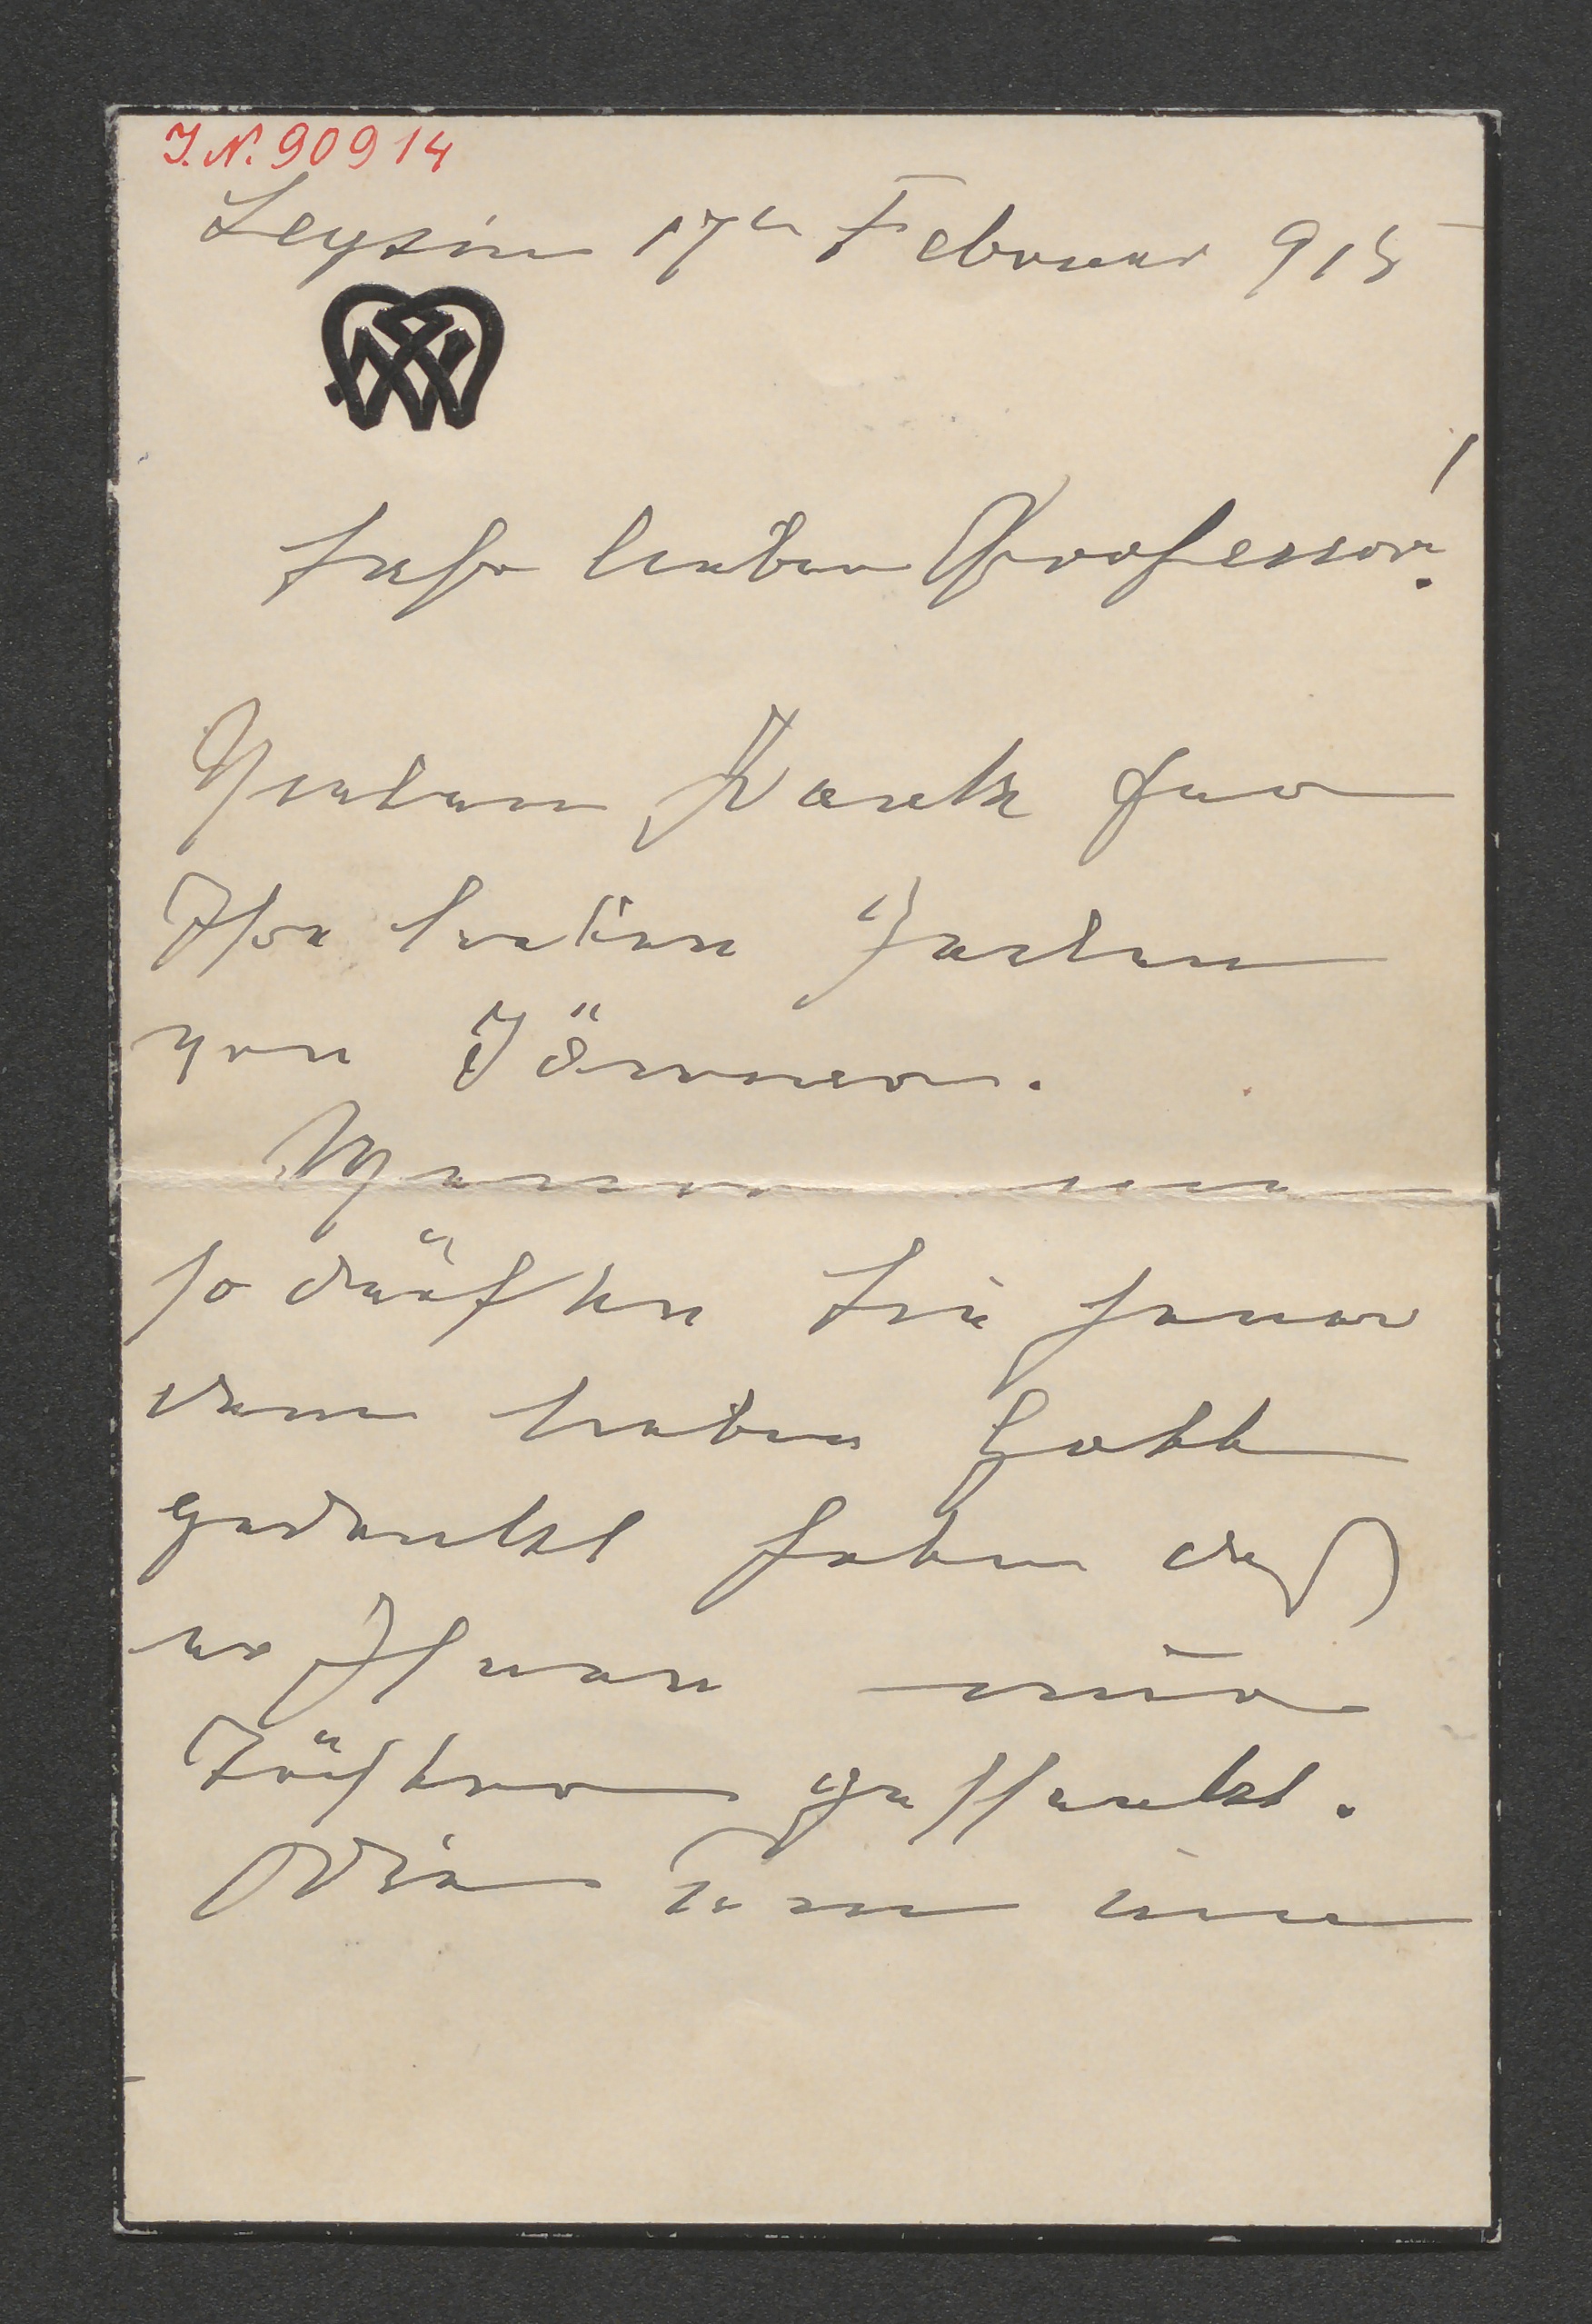 J.N. 90914
Leysin 17ten Februar 915
Sehr lieber Professor!
Vielen Dank für
Ihre lieben Zeilen
von Jänner.
nur
so dürften Sie
dem lieben Gott
gedankt haben daß
er Ihnen nur
Töchter geschenkt.
Die